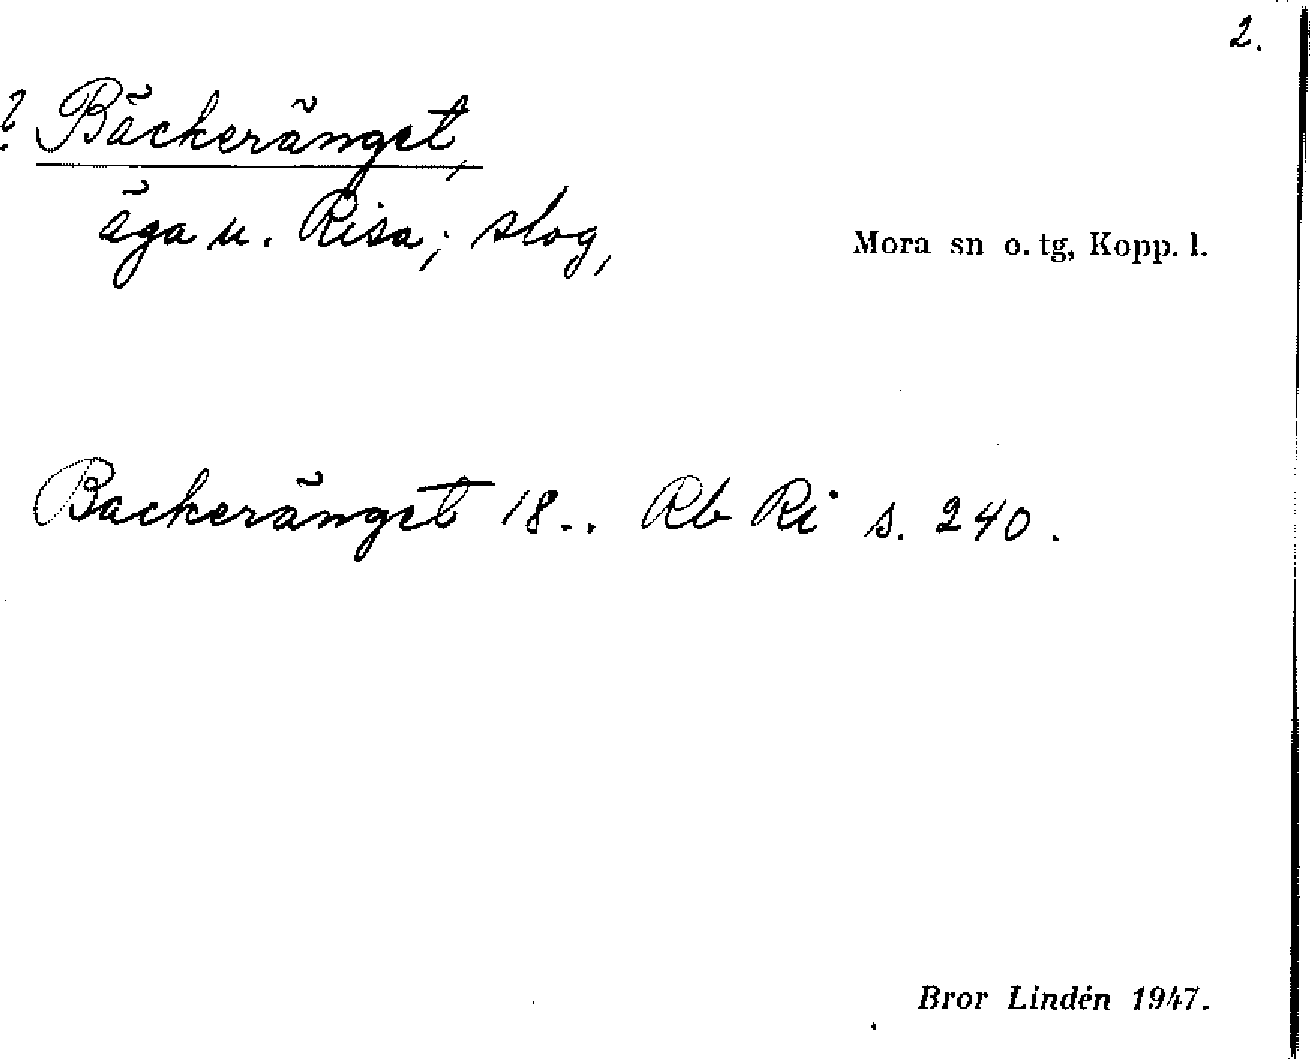 2.
? Bäckeränget,
äga u. Risa; slog,
Mora sn o. tg, Kopp. l.
Backeränget 18.. Rb Ri s. 240.
Bror Lindén 1947.